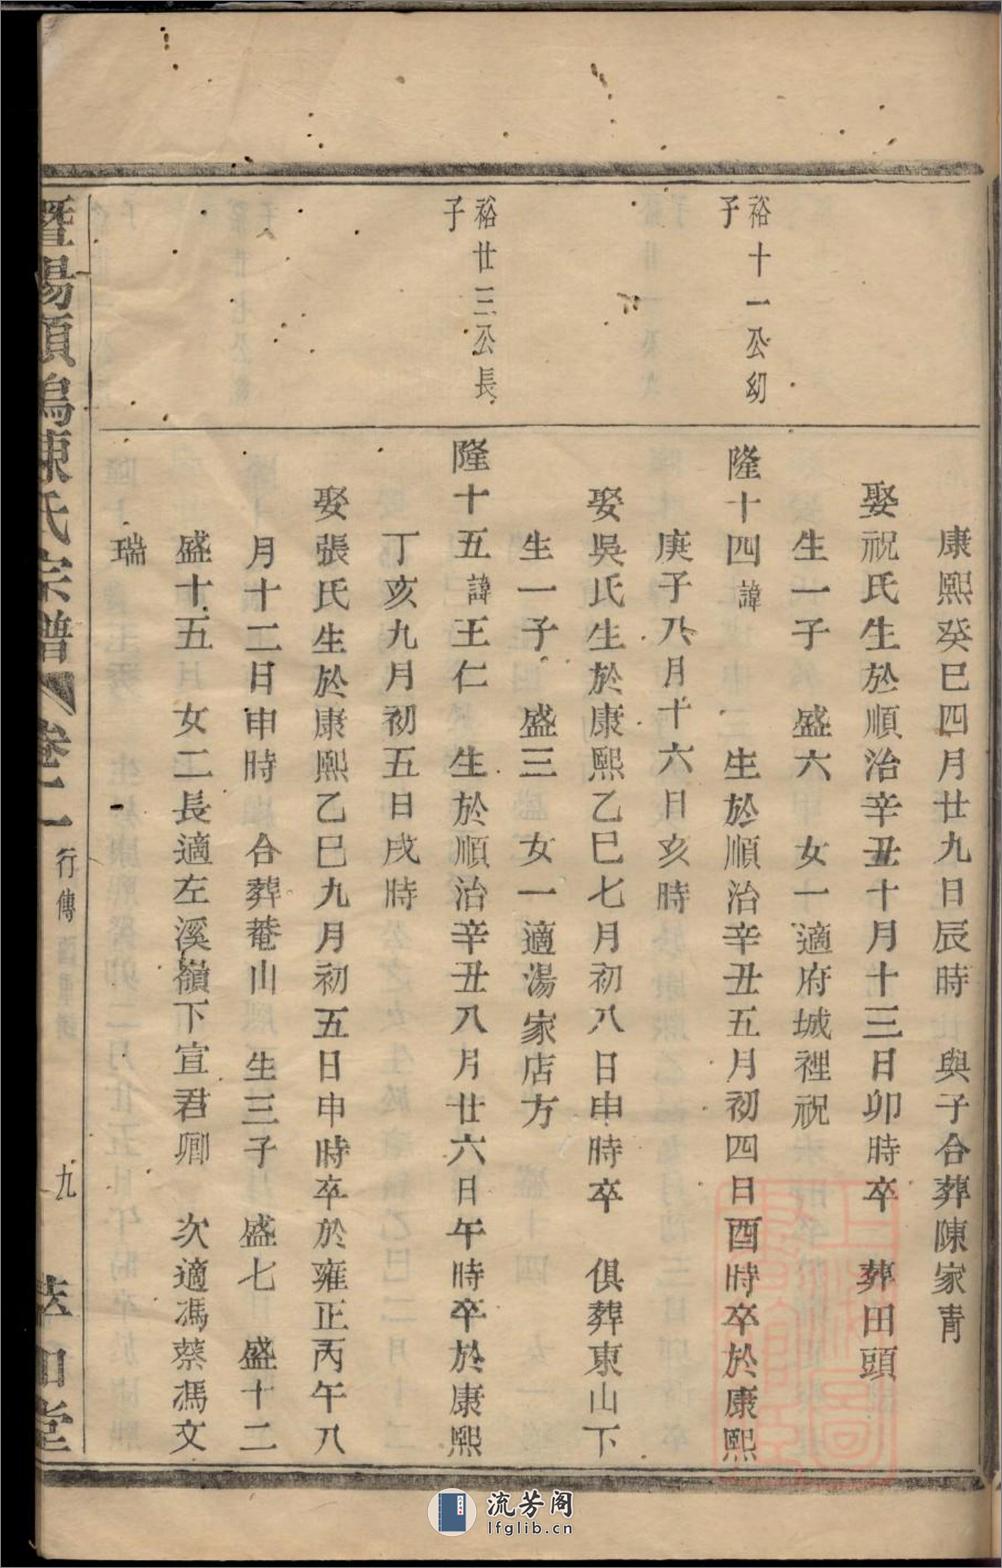 康熙癸巳四月廿九日辰時 與子合葬陳家青
娶祝氏生於順治辛丑十月十三日卯時卒 葬田頭
生一子 盛六 女一適府城裡祝
裕十一公幼
子
隆十四諱 生於順治辛丑五月初四日酉時卒於康熙
庚子八月十六日亥時
娶吳氏生於康熙乙巳七月初八日申時卒 俱葬東山下
生一子 盛三 女一適湯家店方
裕廿三公長
子
隆十五諱王仁 生於順治辛丑八月廿六日午時卒於康熙
丁亥九月初五日戌時
娶張氏生於康熙乙巳九月初五日申時卒於雍正丙午八
月十二日申時 合葬菴山 生三子 盛七 盛十二
盛十五 女二長適左溪嶺下宣君卿 次適馮蔡馮文
瑞
暨陽項塢陳氏宗譜 卷二 行傳 九 堂
流芳阁
lfglib.cn